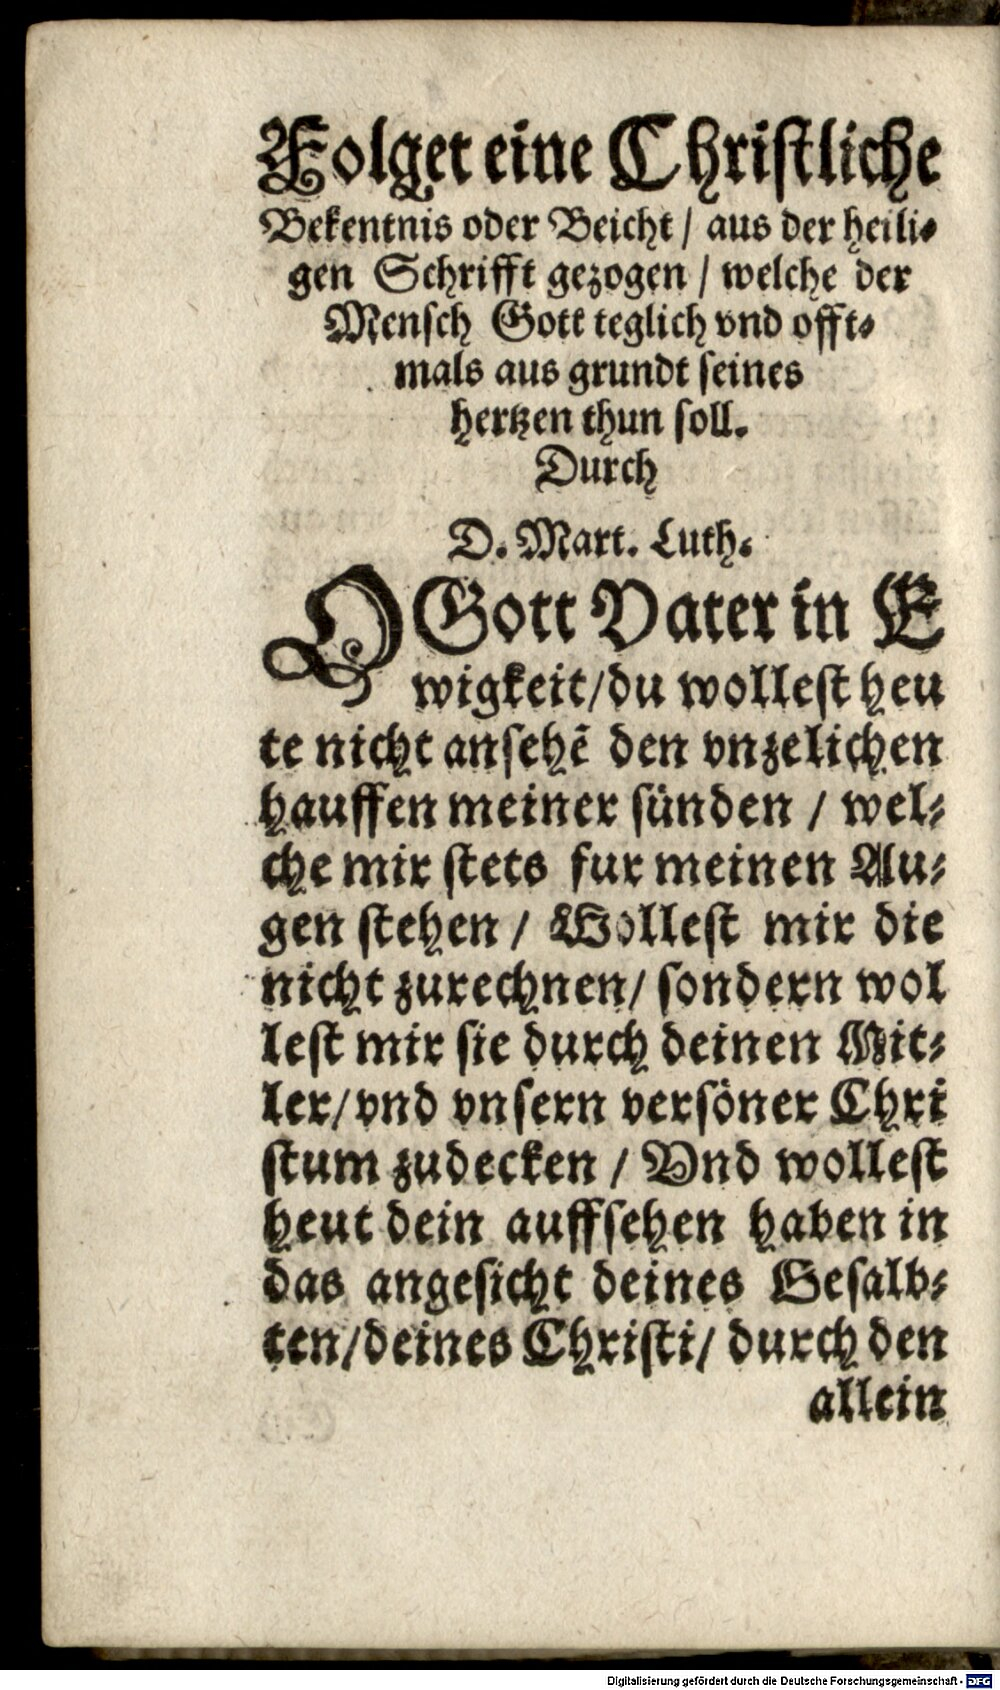 Folget eine Christliche
Bekentnis oder Beicht / aus der heili-
gen Schrifft gezogen / welche der
Mensch Gott teglich vnd offt-
mals aus grundt seines
hertzen thun soll.
Durch
D. Mart. Luth.
O Gott Vater in E
wigkeit / du wollest heu
te nicht ansehẽ den vnzelichen
hauffen meiner sünden / wel-
che mir stets fur meinen Au-
gen stehen / Wollest mir die
nicht zurechnen / sondern wol
lest mir sie durch deinen Mit-
ler / vnd vnsern versöner Chri
stum zudecken / Vnd wollest
heut dein auffsehen haben in
das angesicht deines Gesalb-
ten / deines Christi / durch den
allein
Digitalisierung gefördert durch die Deutsche Forschungsgemeinschaft - DFG